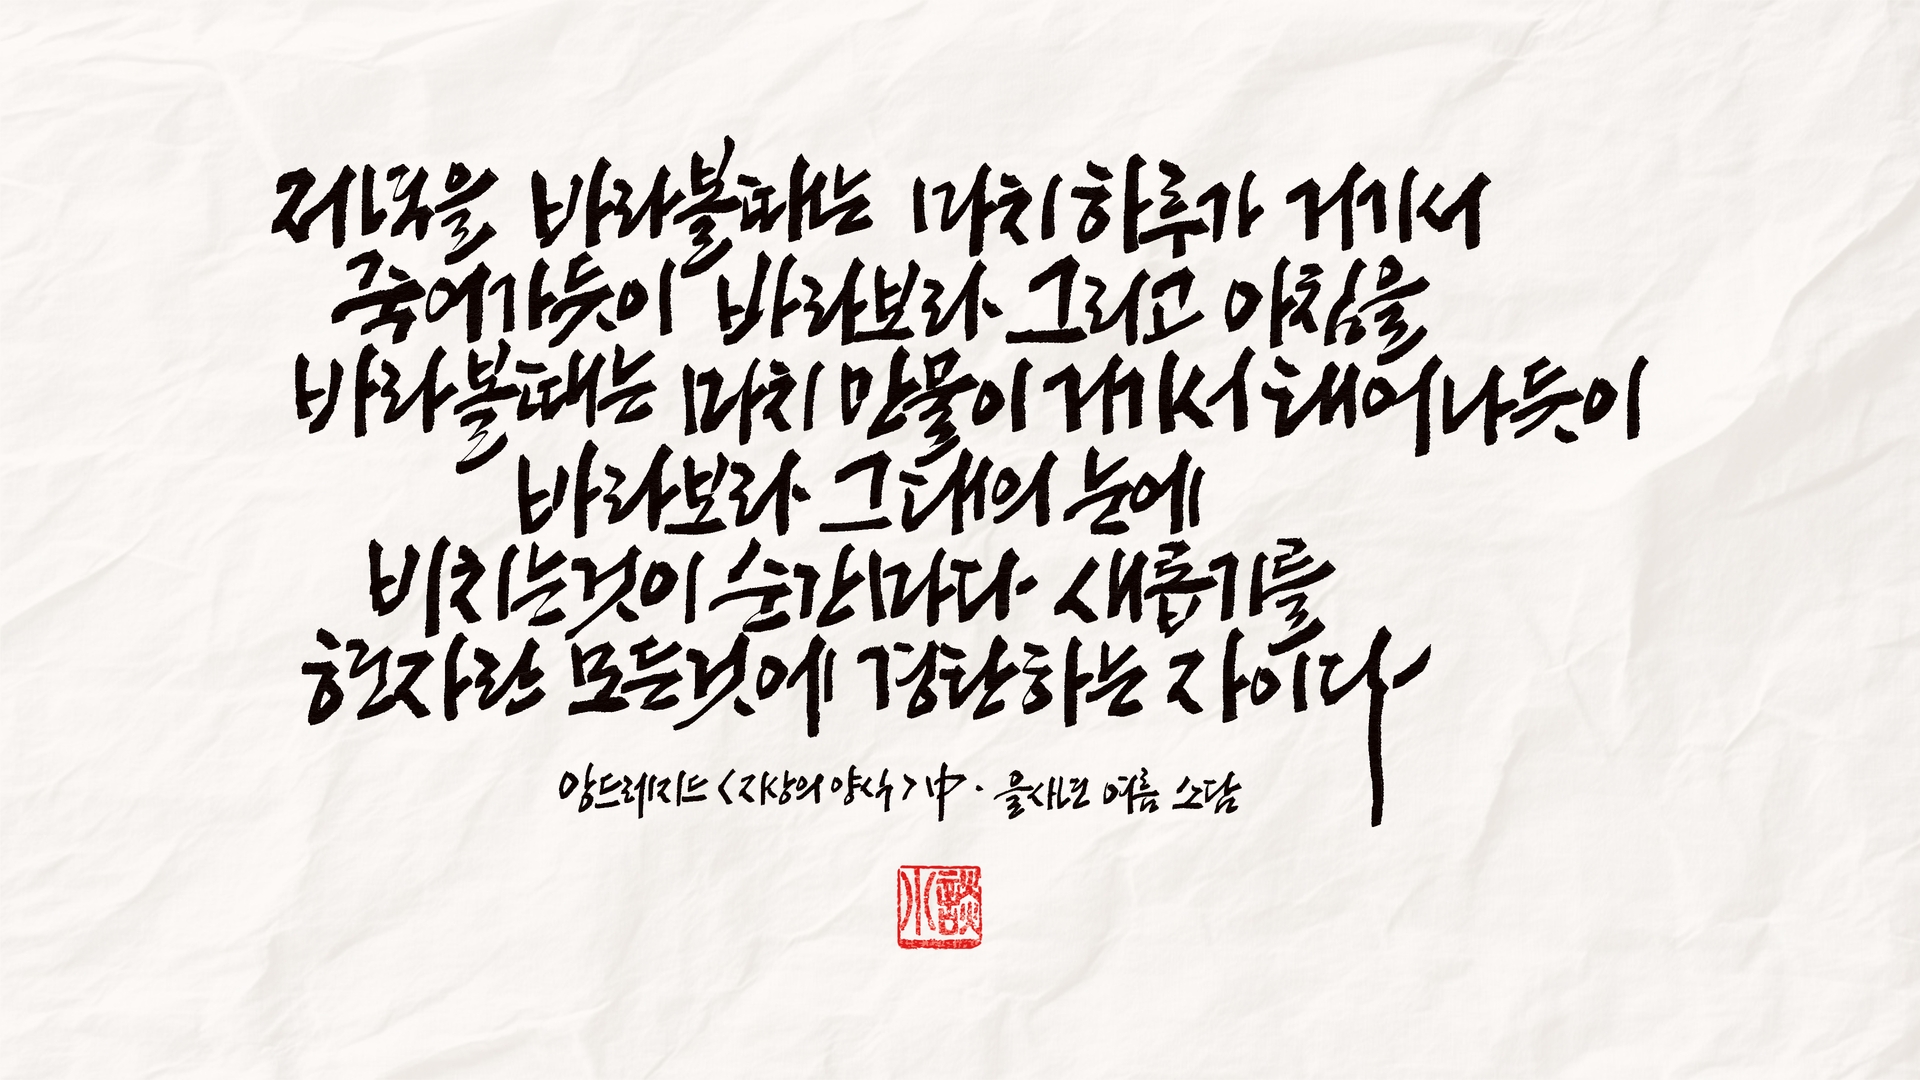 저녁을 바라볼때는 마치 하루가 거기서
죽어가듯이 바라보라 그리고 아침을
바라볼때는 마치 만물이 거기서 태어나듯이
바라보라 그대의 눈에
비치는것이 순간마다 새롭기를
현자란 모든것에 경탄하는 자이다
앙드레지드 <지상의 양식> 中 · 을사년 여름 소담
小談